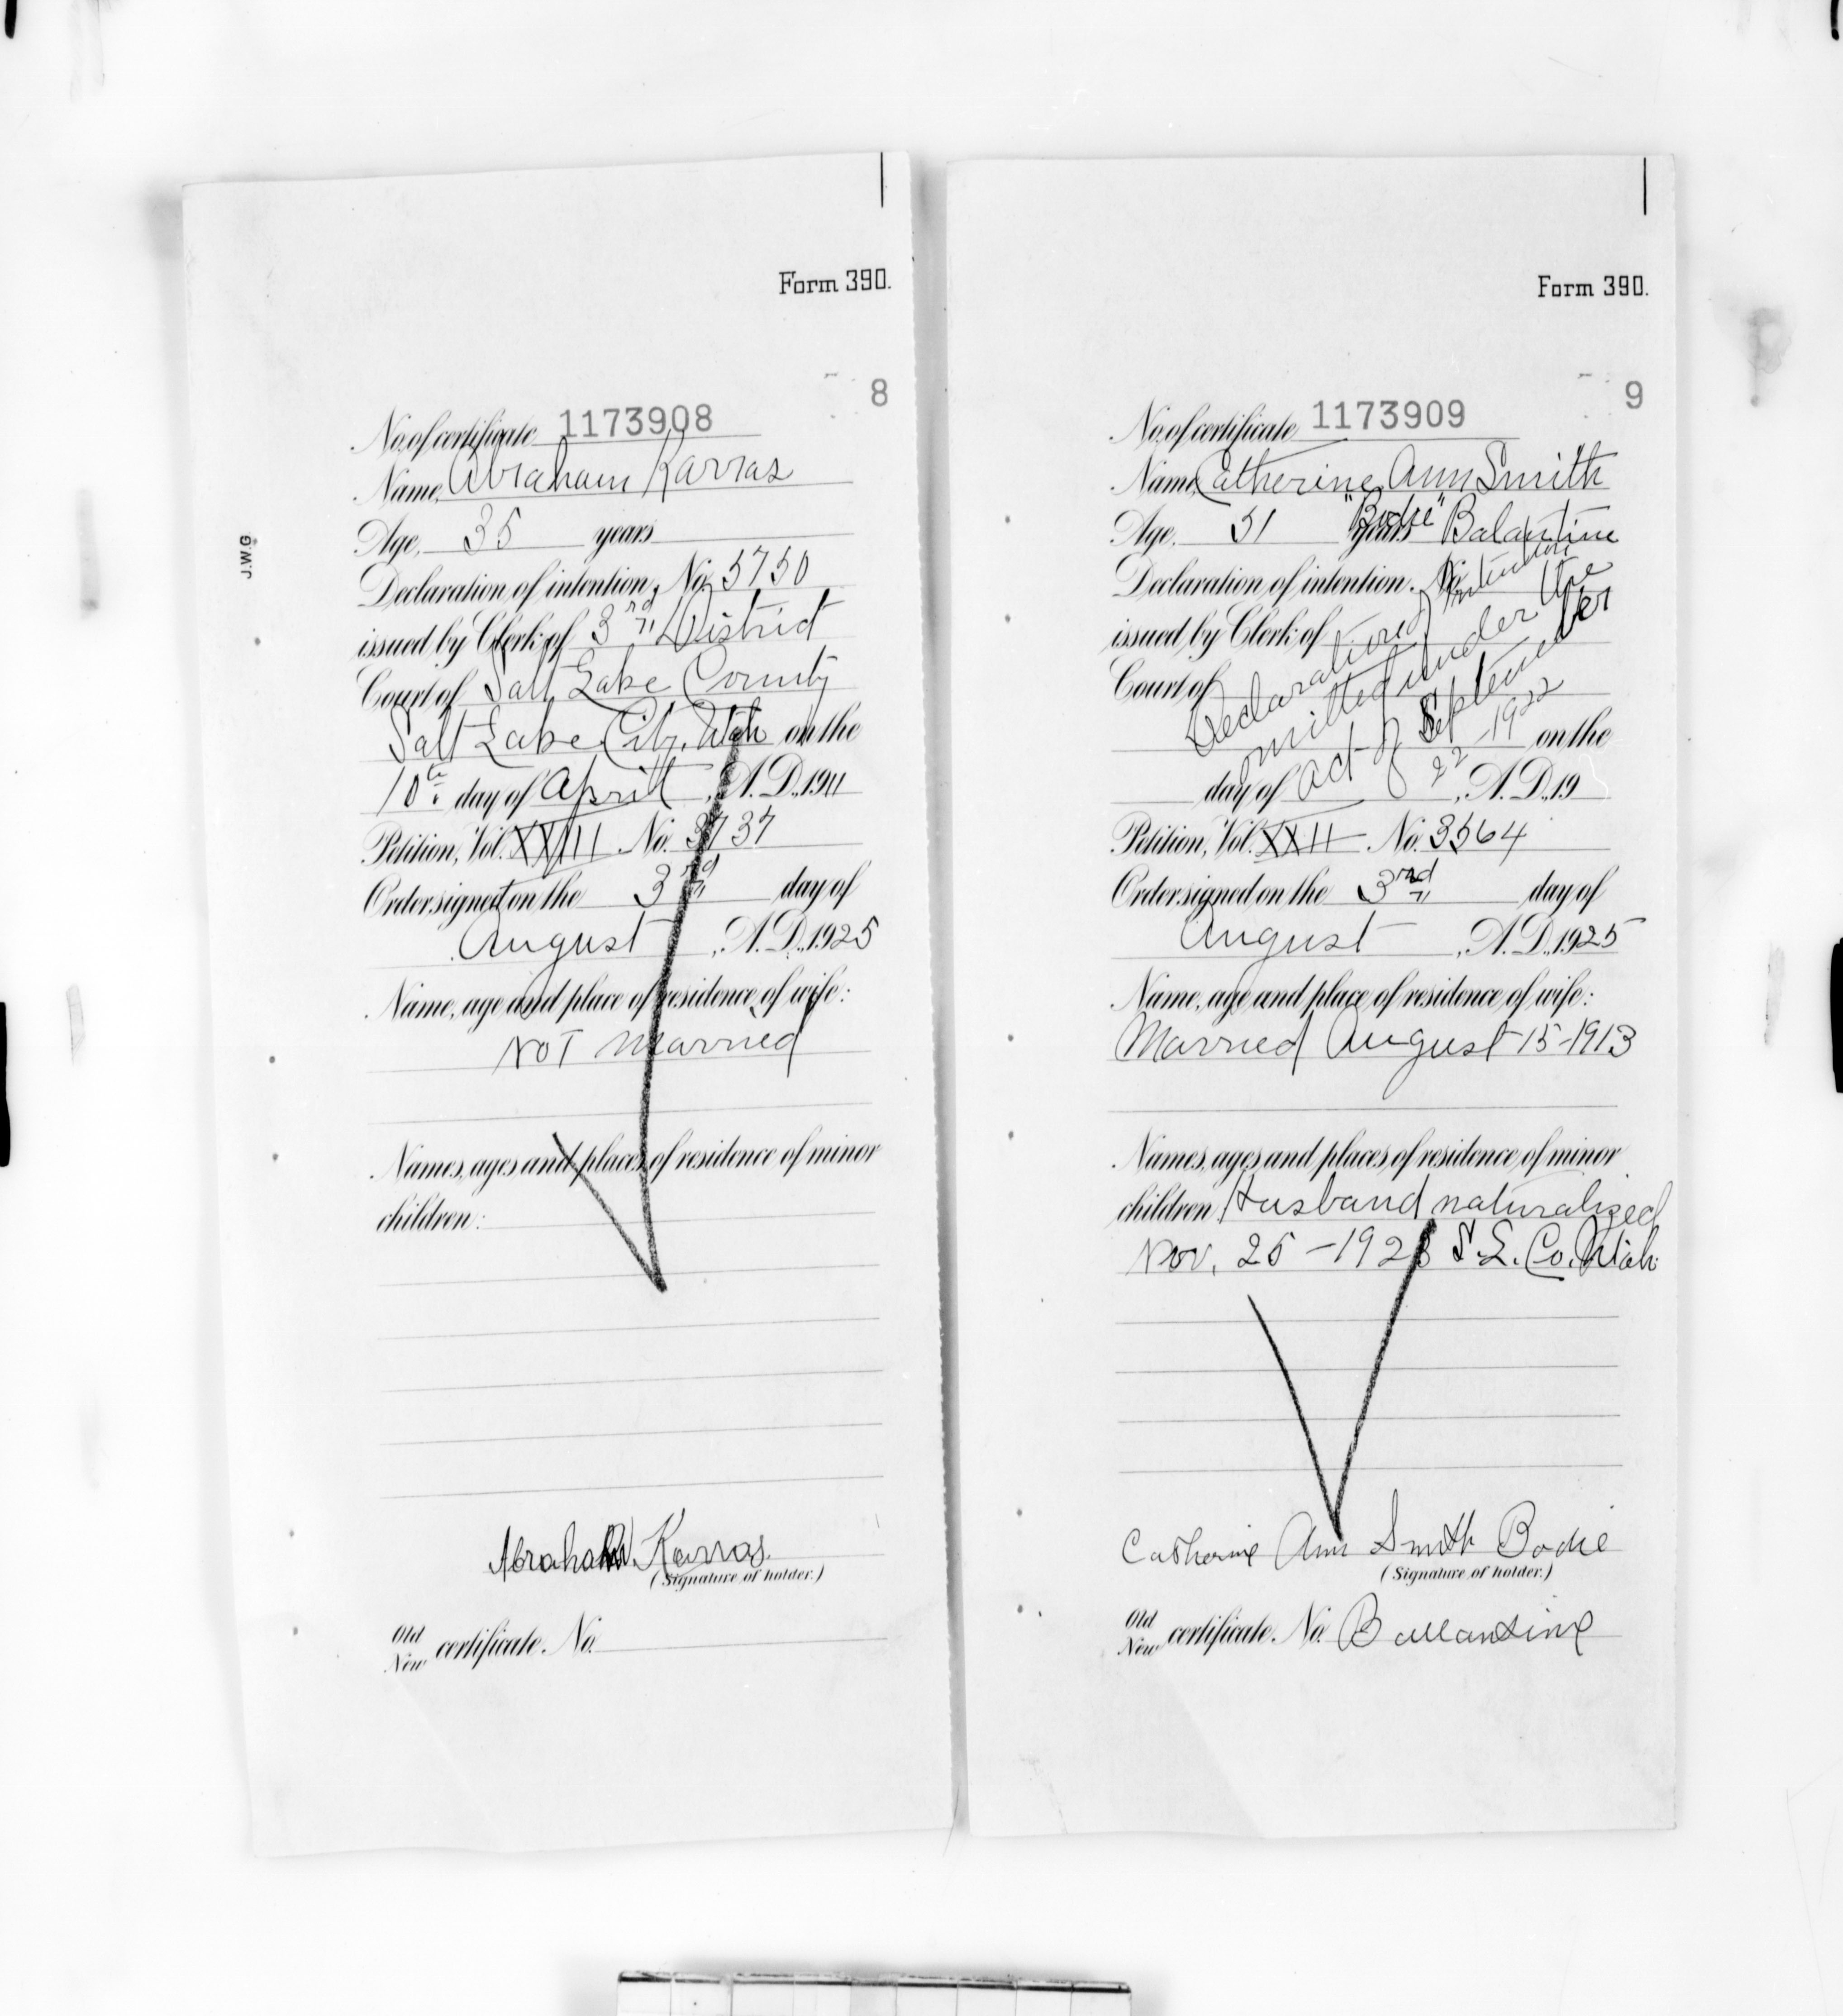 Form 390.
8
No. of certificate 1173908
Name, Abraham Karras
Age, 35 years
Declaration of intention, No. 5750
issued by Clerk of 3rd District
Court of Salt Lake County
Salt Lake City, Utah on the
10th day of April, A. D., 1911
Petition, Vol. XXIII No. 3737
Order signed on the 3rd day of
August, A. D., 1925
Name, age and place of residence of wife:
Not married
Names, ages and places of residence of minor
children:
Abraham Karras
(Signature of holder.)
Old
New certificate. No.
J.W.G
Form 390.
9
No. of certificate 1173909
Name, Catherine Ann Smith
Age, 51 years "Bodie" Balantine
Declaration of intention. No.
issued by Clerk of
Court of
on the
day of , A. D., 19
Declaration of intention
omitted under the
act of September
22-1922
Petition, Vol. XXII No. 3564
Order signed on the 3rd day of
August, A. D., 1925
Name, age and place of residence of wife:
Married August-15-1913
Names, ages and places of residence of minor
children Husband naturalized
Nov. 25-192 S. L. Co. Utah
Catherine Ann Smith Bodie
(Signature of holder.)
Old
New certificate. No. Ballantine